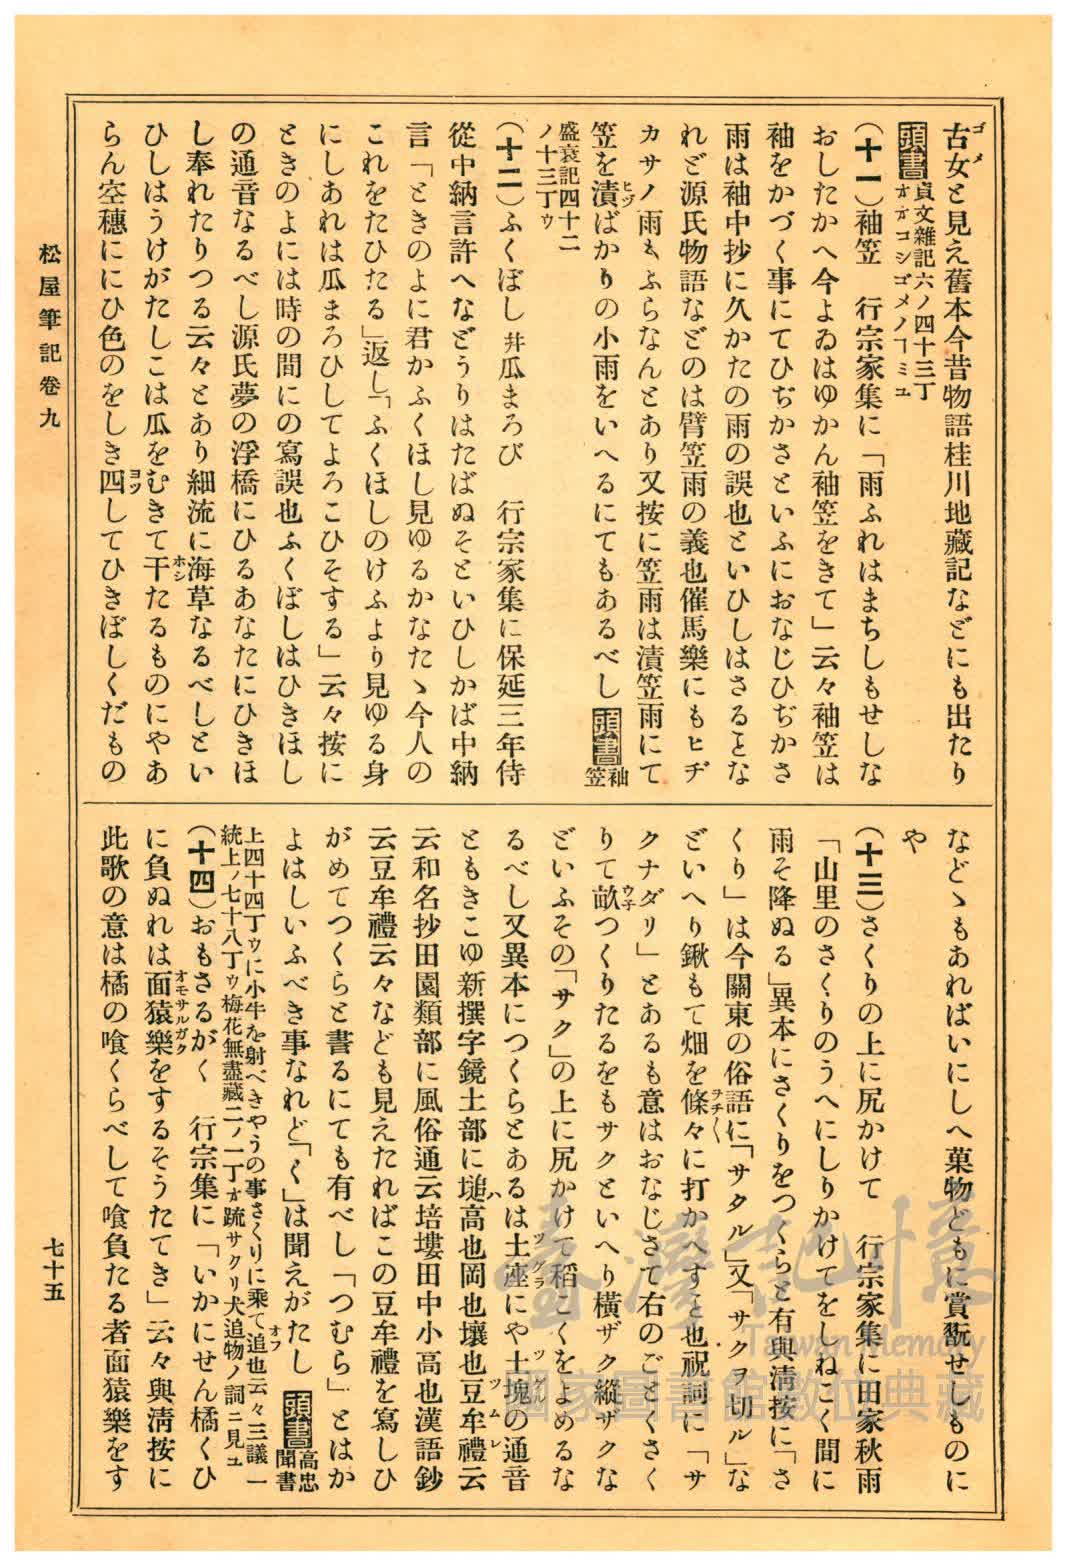 古女と見え舊本今昔物語桂川地藏記などにも出たり
ゴメ
頭書
貞丈雜記六ノ四十三丁
オガコシゴメノヿミユ
（十一）袖笠　行宗家集に「雨ふれはまちしもせしな
おしたかへ今よゐはゆかん袖笠をきて」云々袖笠は
袖をかづく事にてひぢかさといふにおなじひぢかさ
雨は袖中抄に久かたの雨の誤也といひしはさるとな
れど源氏物語などのは臂笠雨の義也催馬樂にもヒヂ
カサノ雨もふらなんとあり又按に笠雨は漬笠雨にて
笠を漬ばかりの小雨をいへるにてもあるべし
ヒヅ
頭書
袖笠
盛衰記四十二
ノ十三丁ゥ
（十二）ふくぼし幷瓜まろび　行宗家集に保延三年侍
從中納言許へなどうりはたばぬそといひしかば中納
言「ときのよに君かふくほし見ゆるかなたゝ今人の
これをたひたる」返し「ふくほしのけふより見ゆる身
にしあれは瓜まろひしてよろこひそする」云々按に
ときのよには時の間にの寫誤也ふくぼしはひきほし
の通音なるべし源氏夢の浮橋にひるあなたにひきほ
し奉れたりつる云々とあり細流に海草なるべしとい
ひしはうけがたしこは瓜をむきて干たるものにやあ
ホシ
らん空穗ににひ色のをしき四してひきぼしくだもの
ヨツ
などゝもあればいにしへ菓物どもに賞翫せしものに
や
（十三）さくりの上に尻かけて　行宗家集に田家秋雨
「山里のさくりのうへにしりかけてをしねこく間に
雨そ降ぬる」異本にさくりをつくらと有與淸按に「さ
くり」は今關東の俗語に「サタル」又「サクヲ切ル」な
どいへり鍬もて畑を條々に打かへすと也祝詞に「サ
ヲチ〱
クナダリ」とあるも意はおなじさて右のごとくさく
りて畝つくりたるをもサクといへり橫ザク縱ザクな
ウ子
どいふその「サク」の上に尻かけて稻こくをよめるな
るべし又異本につくらとあるは土座にや土塊の通音
ツグラ
ツグル
ともきこゆ新撰字鏡土部に塠高也岡也壤也豆牟禮云
ツムレ
云和名抄田園類部に風俗通云培塿田中小高也漢語鈔
云豆牟禮云々なども見えたればこの豆牟禮を寫しひ
がめてつくらと書るにても有べし「つむら」とはか
よはしいふべき事なれど「く」は聞えがたし
頭書
高忠聞書
上四十四丁ゥに小牛を射べきやうの事さくりに乘て追也云々三議一
オフ
統上ノ七十八丁ゥ梅花無盡藏二ノ一丁ォ䟽サクリ犬追物ノ詞ニ見ユ
（十四）おもさるがく　行宗集に「いかにせん橘くひ
に負ぬれは面猿樂をするそうたてき」云々與淸按に
オモサルガク
此歌の意は橘の喰くらべして喰負たる者面猿樂をす
松屋筆記卷九
七十五
臺灣記憶
Taiwan Memory
國家圖書館數位典藏